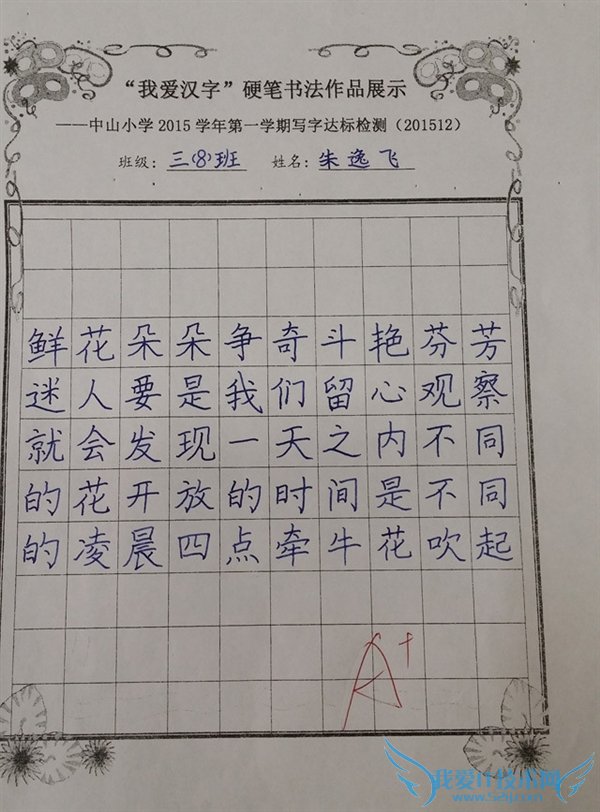 “我爱汉字”硬笔书法作品展示
——中山小学2015学年第一学期写字达标检测（201512）
班级：三(8)班 姓名：朱逸飞
鲜花朵朵争奇斗艳芬芳
迷人要是我们留心观察
就会发现一天之内不同
的花开放的时间是不同
的凌晨四点牵牛花吹起
A+
我爱IT技术网
www.52ij.com